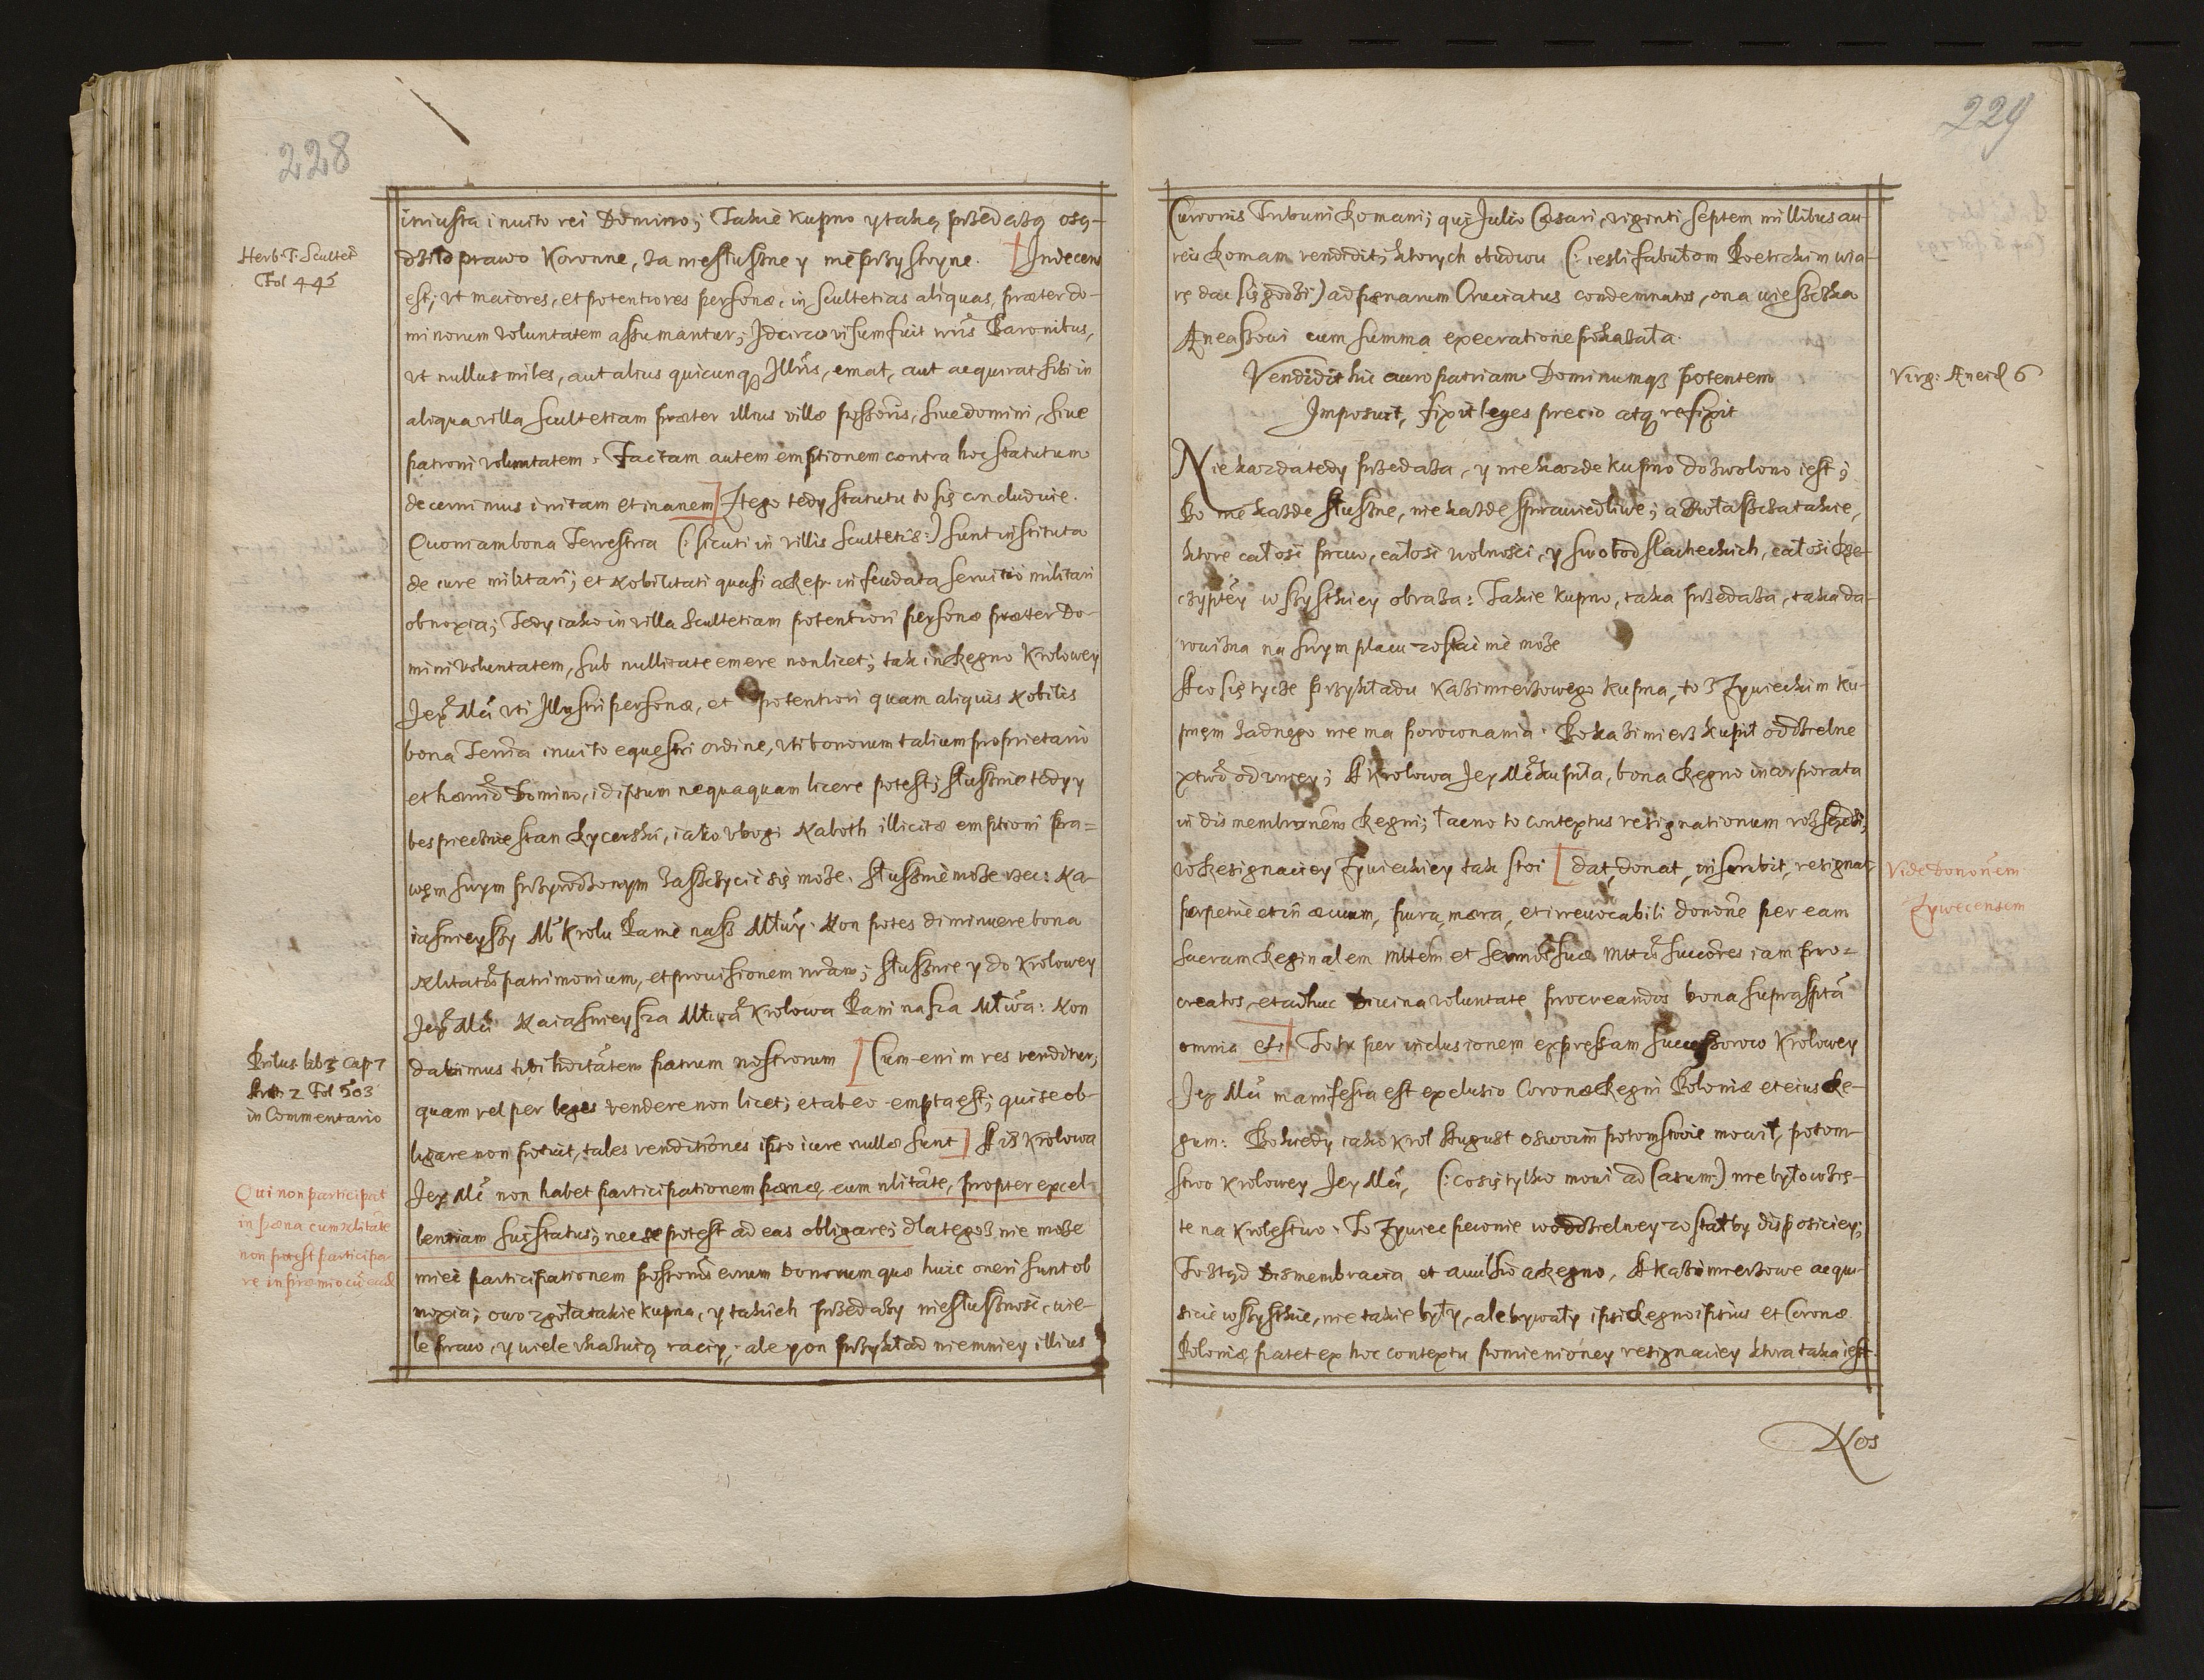 228
iniusta inuito rei Domino; Takie kupno y taką przedażą osą-
Herb: T: Scultet
Fol 445
dziło prawo Koronne, za niesłuszne y nieprzystoyne. [Indecens
est; vt maiores, et potentiores personæ, in scultetias aliquas, præter do-
minorum voluntatem assumantur; Idcirco visum fuit nris Baronibus,
vt nullus miles, aut alius quicunq3 Illris, emat, aut acquirat sibi in
aliqua villa scultetiam præter illius villæ possoris, siue domini, siue
patroni voluntatem. Factam autem emptionem contra hoc statutum
decernimus irritam et inanem] Z tego tedy statutu to się concluduie.
Quoniam bona Terrestria (: sicuti in villis scultetiæ:) sunt instituta
de iure militari; et Nobilitati quasi a Rep. infeudata seruitio militari
obnoxia; Tedy iako in villa Scultetiam potentiori personæ præter Do-
mini voluntatem, sub nullitate emere non licet; tak in Regno Krolowey
Jey Mci vti Illustri personæ, et potentiori quam aliquis Nobilis
bona Terria inuito equestri ordine, vti bonorum talium proprietario
et hæred Domino, id ipsum nequaquam licere potest; słusznie tedy y
bespiecznie stan Rycerski, iako vbogi Naboth illicitæ emptioni pra=
wem swym przyrodzonym zaszczycić się może. Słusznie może rzec: Na-
iasnieyszy M Krolu Panie nasz Młwy. Non potes diminuere bona
Nlitatis patrimonium, et prouisionem nram; słusznie y do Krolowey
Jey Mci Naiasnieysza Młwa Krolowa Pani nasza Młwa: Non
dabimus tibi hditatem patrum nostrorum [Cum enim res venditur,
Prilus. lib 3 Cap 7
Art 2 Fol 503
in Commentario
quam vel per leges vendere non licet; et ab eo empta est; qui se ob-
ligare non potuit, tales venditiones ipso iure nullæ sunt] A iż Krolowa
Qui non participat
in pæna cum Nlitate
non potest participa-
re in præmio cũ ead
Jey Mć non habet participationem pænæ, cum nlitate, propter excel-
lentiam sui status; nec se potest ad eas obligare; dla tegoż nie może
mieć participationem possonis eorum bonorum quæ huic oneri sunt ob
noxia; owo zgoła takie kupna, y takich przedaży niesłusznosć, wie-
le praw, y wiele vkazuią raciy; ale y on przykład niemniey illius
229
Curionis Tribuni Romani; qui Julio Cæsari, viginti septem millibus au-
reis Romam vendidit; ktorych obudwu (: iesli fabułom Poetickim wia-
rę dać się godzi) ad pænarum Cruciatus condemnatos, ona wieszczka
Aneaszowi cum summa execratione pokazała.
Vendidit hic auro patriam Dominumq3 potentem
Virg: Aneid 6
Imposuit, fixit leges precio atq3 refixit
Nie każda tedy przedaża, y nie każde kupno dozwolono iest;
Bo nie każde słuszne, nie każde sprawiedliwe; a zwłaszcza takie,
ktore całosi praw, całosi wolnosci, y swobod slacheckich, całosi Rze-
czyptey wszystkiey obraża: Takie kupno, taka przedaża, taka da-
rowizna na swym placu zostać nie może
A co się tycze przykładu Kazimierzowego kupna, to z Zywieckim ku-
pnem żadnego nie ma porownania. Bo Kazimierz kupił oddzielne
xtwo od inszey; A Krolowa Jey Mć kupiła, bona Regno incorporata
in dismembronem Regni; łacno to contextus resignationum rozsądzi;
w Resignaciey Zywieckiey tak stoi [dat, donat, inscribit, resignat
Vide Dononem
Zywecensem
perpetue et in æuum, pura, mera, et irreuocabili donone per eam
Sacram Reginalem Mttem et Serenissæ suæ Mttis succores iam pro=
creatos, et adhuc Diuina voluntate procreandos bona suprasptã
omnia etc] To tu per inclusionem expressam successorow Krolowey
Jey Mci manifesta est exclusio Coronæ Regni Poloniæ et eius Re-
gum: Bo kiedy iako Krol August o swoim potomstwie mowił, potom-
stwo Krolowey Jey Mci, (: co się tylko mowi ad Casum:) nie było wzię-
te na Krolestwo. To Zywiec pewnie w oddzielney zostałby disposiciey;
To stąd dismembracia et auulsio a Regno, A Kazimierzowe acqui-
sicie wszystkie, nie takie były, ale bywały ipsi Regno ipsius et Coronæ
Poloniæ patet ex hoc contextu pomienioney resignaciey ktora taka iest.
Nos